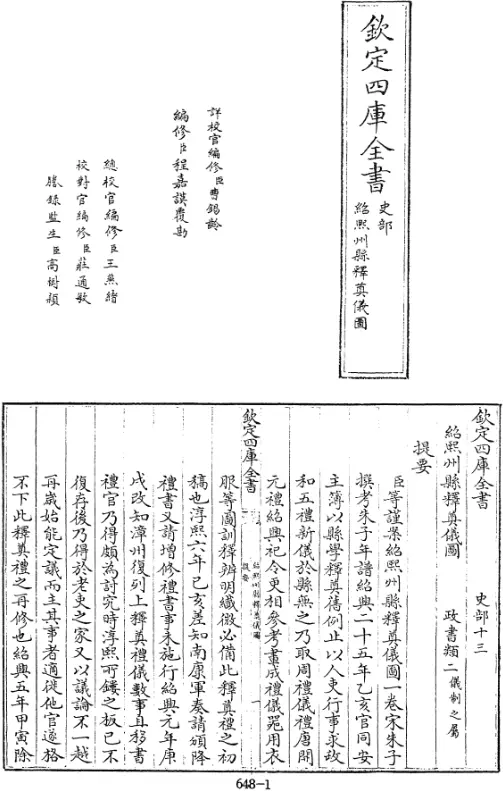 欽定四庫全書
史部
紹熙州縣釋奠儀圖
詳校官編修臣曹錫齡
編修臣程嘉謨覆勘
總校官編修臣王燕緒
校對官編修臣莊通敏
謄錄監生臣高樹穎
欽定四庫全書 史部十三
紹熙州縣釋奠儀圖 政書類二儀制之屬
提要
臣等謹案紹熙州縣釋奠儀圖一卷宋朱子
撰考朱子年譜紹興二十五年乙亥官同安
主簿以縣學釋奠舊例止以人吏行事求政
和五禮新儀於縣無之乃取周禮儀禮唐開
元禮紹興祀令更相參考畫成禮儀器用衣
欽定四庫全書
紹熙州縣釋奠儀圖
提要
一
服等圖訓釋辨明纖微必備此釋奠禮之初
稿也淳熙六年己亥差知南康軍奏請頒降
禮書又請增修禮書事未施行紹興元年庚
戌改知漳州復列上釋奠禮儀數事且移書
禮官乃得頗為討究時淳熙所鏤之板已不
復存後乃得於老吏之家又以議論不一越
再歲始能定議而主其事者適徙他官遂格
不下此釋奠禮之再修也紹興五年甲寅除
648-1